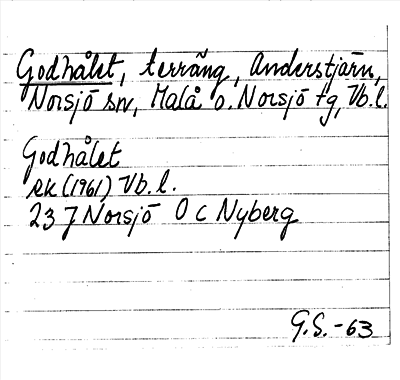 Godhålet, terräng, Anderstjärn,
Norsjö sn, Malå o. Norsjö tg, Vb.l.
Godhålet
ek (1961) Vb. l.
23 J Norsjö O C Nyberg
G.S.-63